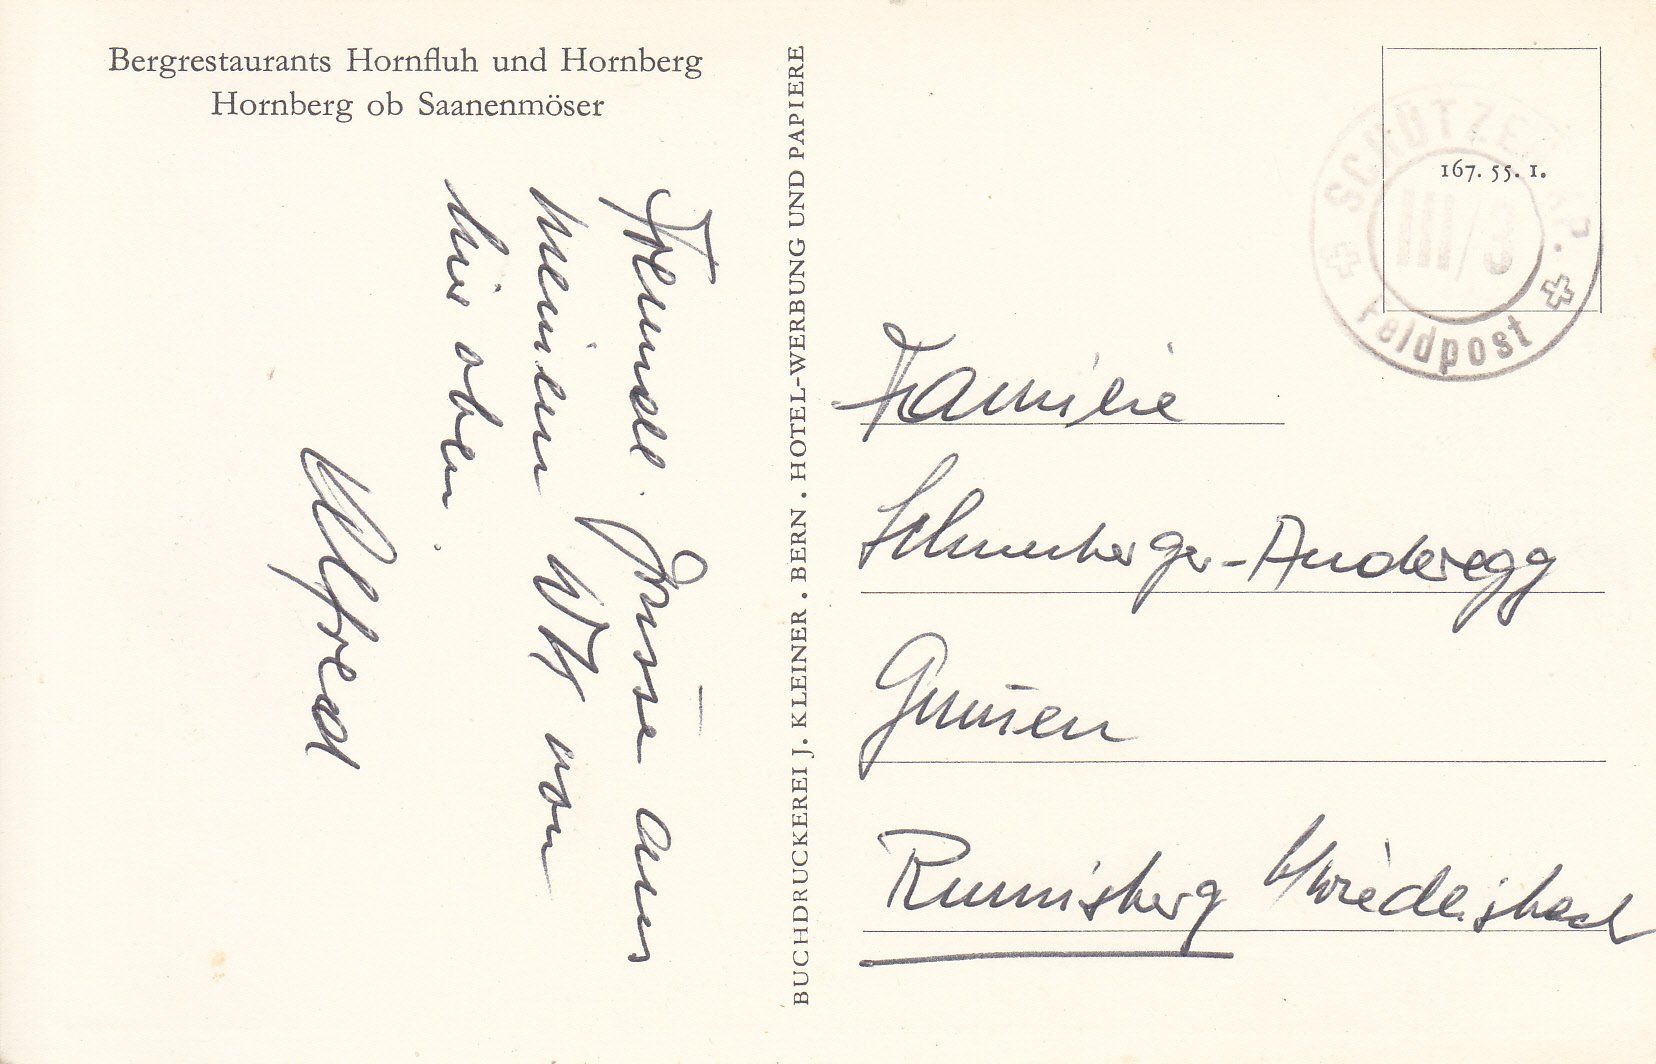 Bergrestaurants Hornfluh und Hornberg
Hornberg ob Saanenmöser
Freundl. Grüsse aus
meinem WK von
hier oben.
Alfred
BUCHDRUCKEREI J. KLEINER . BERN . HOTEL-WERBUNG UND PAPIERE
167. 55. 1.
SCHÜTZEN KP.
III/3
Feldpost
Familie
Schnerberger-Anderegg
Rumisberg b/Wiedlisbach